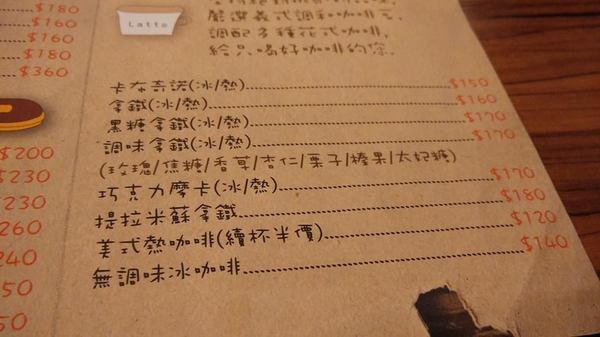 $180
$160
$160
$180
$360
$200
$230
$230
$260
$240
Latte
嚴選義式調和咖啡豆,
調配多種花式咖啡,
給只喝好咖啡的您.
卡布奇諾(冰/熱) $150
拿鐵(冰/熱) $160
黑糖拿鐵(冰/熱) $170
調味拿鐵(冰/熱) $170
(玫瑰/焦糖/香草/杏仁/栗子/榛果/太妃糖)
巧克力摩卡(冰/熱) $170
提拉米蘇拿鐵 $180
美式熱咖啡(續杯半價) $120
無調味冰咖啡 $140